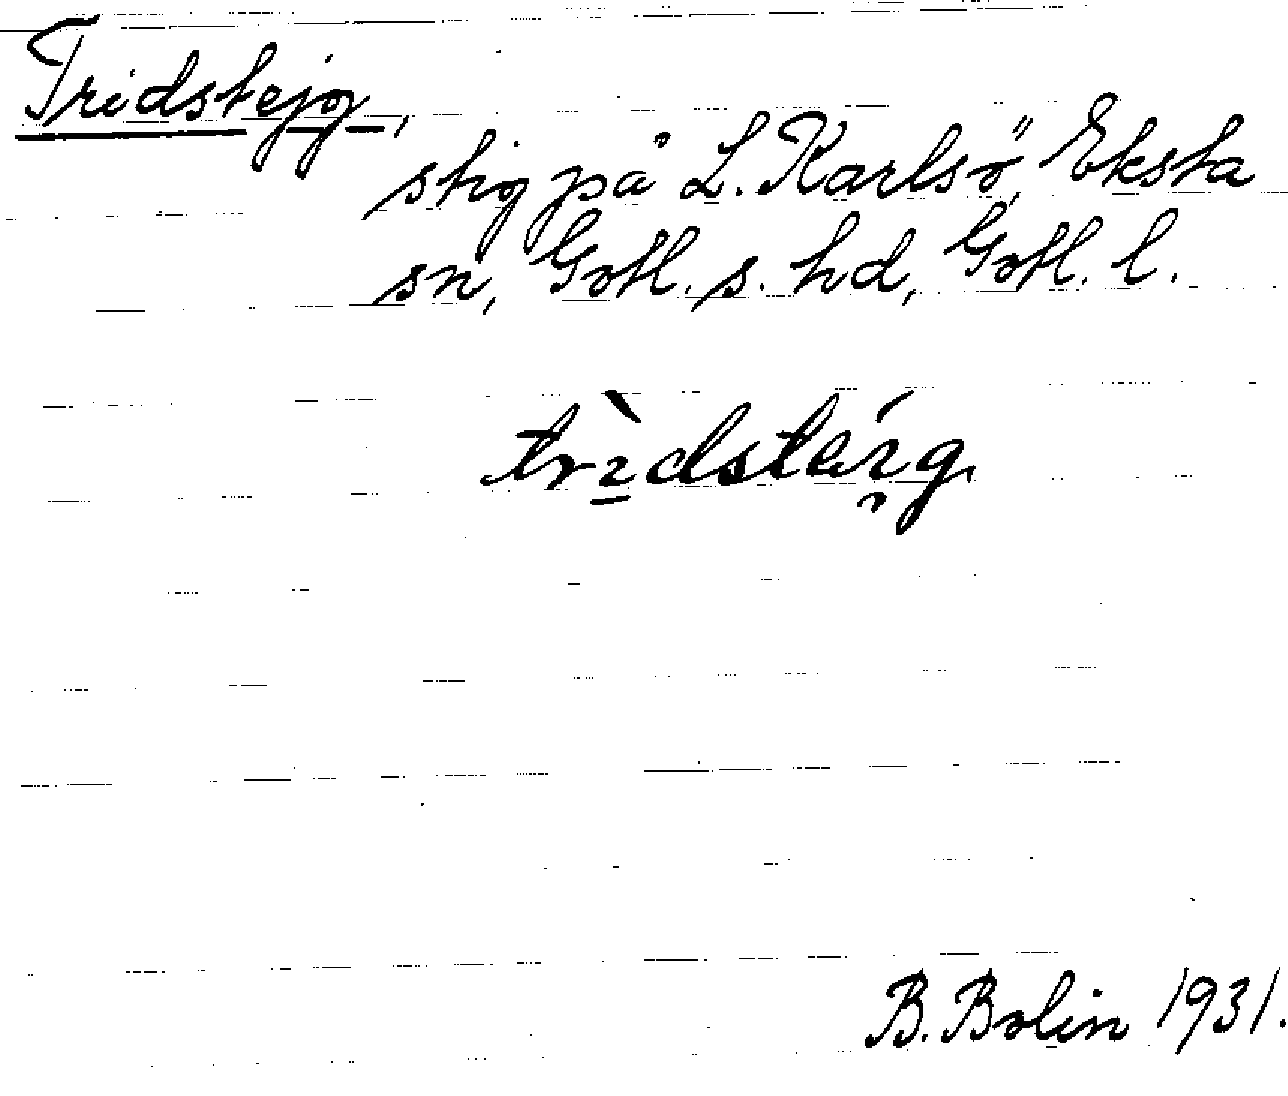 Tridstejg,
stig på L. Karlsö, Eksta
sn, Gotl. s. hd, Gotl. l.
trìdsteı́g.
B. Bolin 1931.